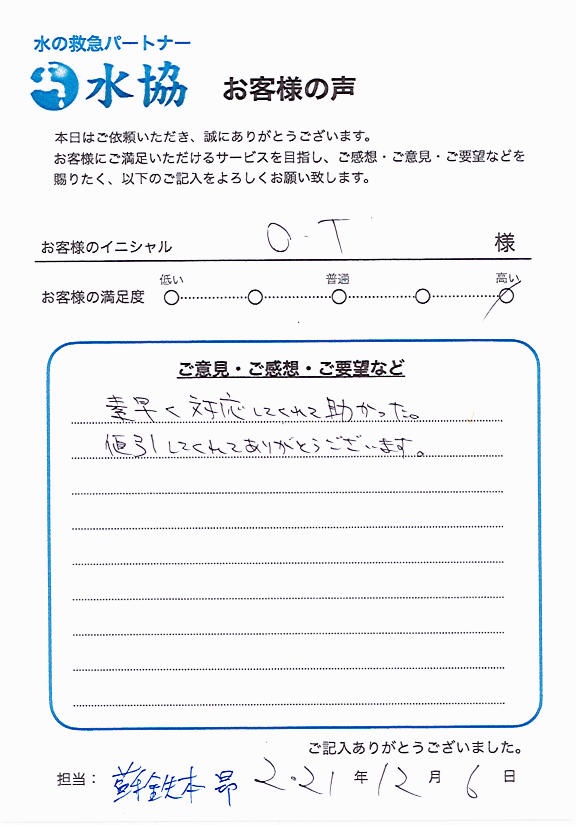 水の救急パートナー
水協 お客様の声
本日はご依頼いただき、誠にありがとうございます。
お客様にご満足いただけるサービスを目指し、ご感想・ご意見・ご要望などを
賜りたく、以下のご記入をよろしくお願い致します。
お客様のイニシャル O・T 様
低い 普通 高い
お客様の満足度
ご意見・ご感想・ご要望など
素早く対応してくれて助かった。
値引してくれてありがとうございます。
ご記入ありがとうございました。
担当: 2021年12月6日